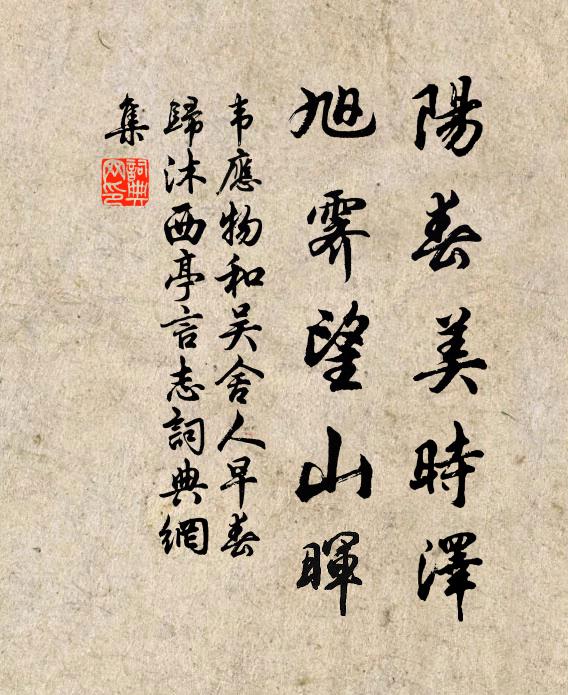 陽春美時澤
旭霽望山暉
韦應物和吴舍人早春
歸沐西亭言志詞典網
集
詞典
网印